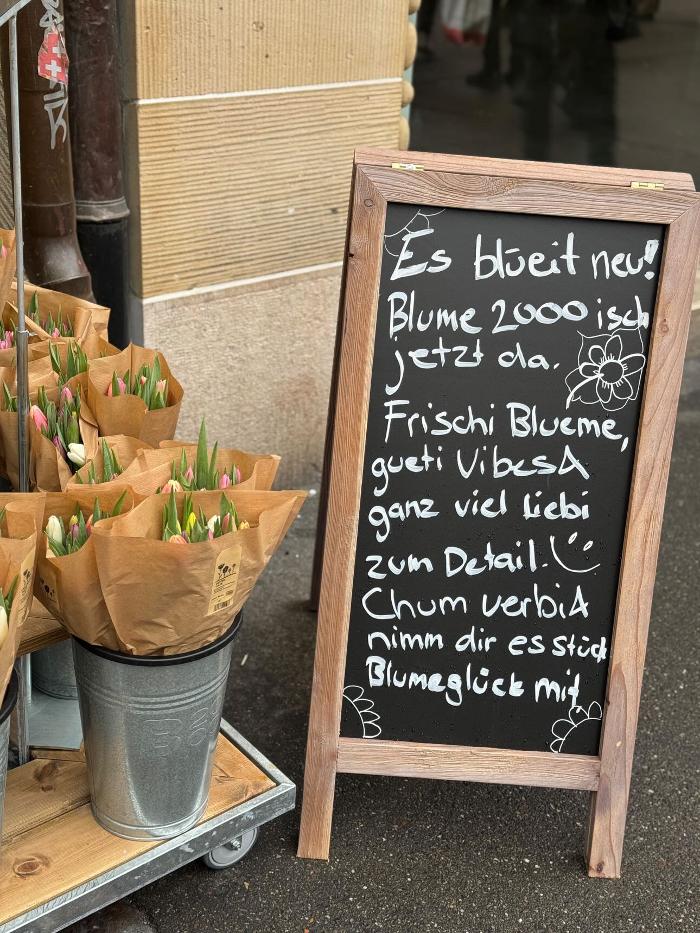 Es blüeit neu!
Blume 2000 isch
jetzt da.
Frischi Blueme,
gueti Vibes &
ganz viel Liebi
zum Detail.
Chum verbi &
nimm dir es stück
Blumeglück mit